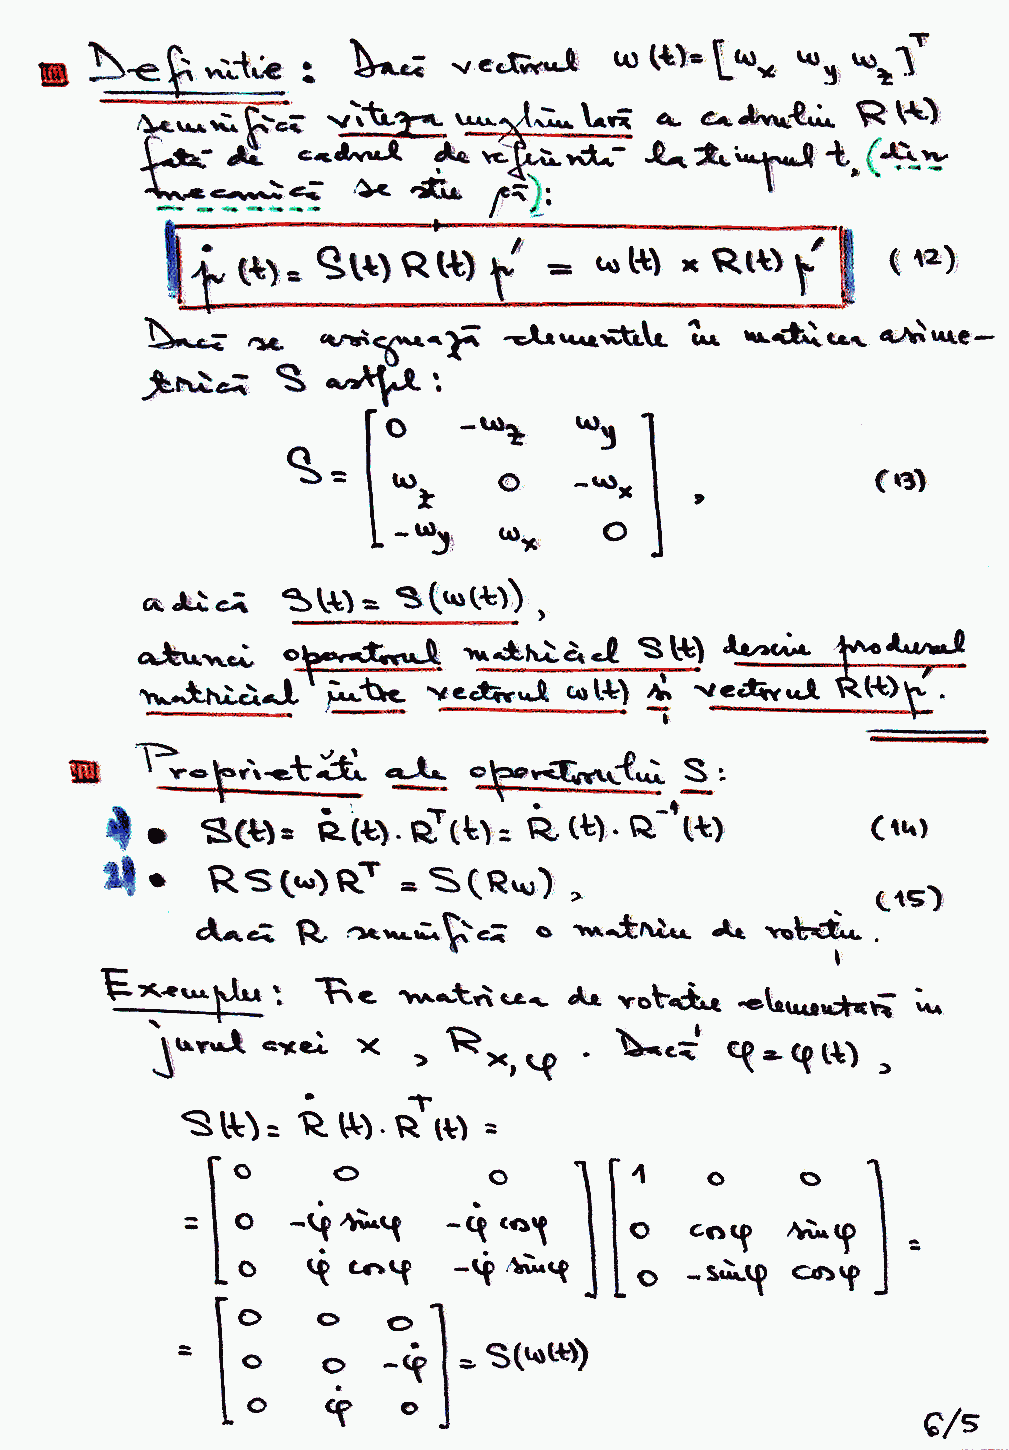 Definitie: Dacă vectorul ω(t)=[ωx ωy ωz]ᵀ
semnifică viteza unghiulară a cadrului R(t)
față de cadrul de referință la timpul t, (din
mecanică se știe că):
ṗ(t) = S(t) R(t) p' = ω(t) × R(t) p' (12)
Dacă se asignează elementele în matricea asime-
trică S astfel:
S = [ 0 -ωz ωy
ωz 0 -ωx
-ωy ωx 0 ], (13)
adică S(t) = S(ω(t)),
atunci operatorul matricial S(t) descrie produsul
matricial între vectorul ω(t) și vectorul R(t)p'.
Proprietăți ale operatorului S:
1) • S(t) = Ṙ(t)·Rᵀ(t) = Ṙ(t)·R⁻¹(t) (14)
2) • RS(ω)Rᵀ = S(Rω), (15)
dacă R semnifică o matrice de rotație.
Exemplu: Fie matricea de rotatie elementară in
jurul axei x, Rx,φ. Dacă φ=φ(t),
S(t) = Ṙ(t)·Rᵀ(t) =
= [ 0 0 0 ] [ 1 0 0 ]
[ 0 -φ̇ sinφ -φ̇ cosφ ] [ 0 cosφ sinφ ] =
[ 0 φ̇ cosφ -φ̇ sinφ ] [ 0 -sinφ cosφ ]
= [ 0 0 0
0 0 -φ̇
0 φ̇ 0 ] = S(ω(t))
6/5